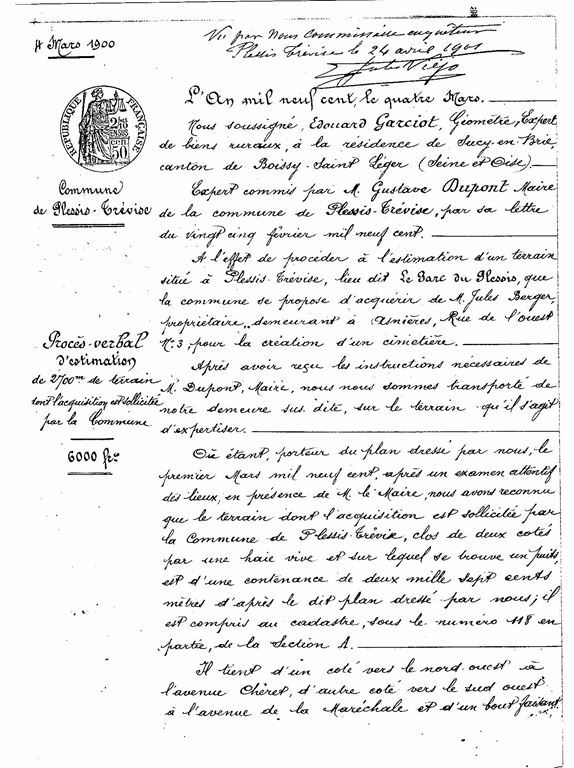 4 Mars 1900
Vu par Nous Commissaire enquêteur
Plessis Trévise le 24 avril 1901
RÉPUBLIQUE FRANÇAISE
50
Commune
de Plessis-Trévise
Procès-verbal
d'estimation
de 2700mc de terrain
dont l'acquisition est sollicitée
par la Commune
6000 frs
L'An mil neuf cent, le quatre Mars.
Nous soussigné, Edouard Garciot, Géomètre, Expert
de biens ruraux, à la résidence de Sucy-en-Brie,
canton de Boissy-Saint Léger (Seine et Oise)
Expert commis par M. Gustave Dupont Maire
de la commune de Plessis-Trévise, par sa lettre
du vingt cinq février mil neuf cent.
A l'effet de procéder à l'estimation d'un terrain
situé à Plessis-Trévise, lieu dit Le Parc du Plessis, que
la commune se propose d'acquérir de M. Jules Berger,
propriétaire, demeurant à Asnières, Rue de l'ouest
N° 3, pour la création d'un cimetière.
Après avoir reçu les instructions nécessaires de
M. Dupont, Maire, nous nous sommes transporté de
notre demeure sus dite, sur le terrain qu'il s'agit
d'expertiser.
Où étant, porteur du plan dressé par nous, le
premier Mars mil neuf cent, après un examen attentif
des lieux, en présence de M. le Maire, nous avons reconnu
que le terrain dont l'acquisition est sollicitée par
la Commune de Plessis-Trévise, clos de deux cotés
par une haie vive et sur lequel se trouve un puits,
est d'une contenance de deux mille sept cents
mètres d'après le dit plan dressé par nous; il
est compris au cadastre, sous le numéro 118 en
partie, de la Section A.
Il tient d'un coté vers le nord ouest à
l'avenue Chéret, d'autre coté vers le sud ouest
à l'avenue de la Maréchale et d'un bout faisant